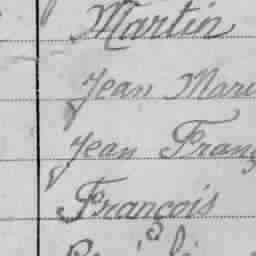 Martin
Jean Mari
Jean Franç
François